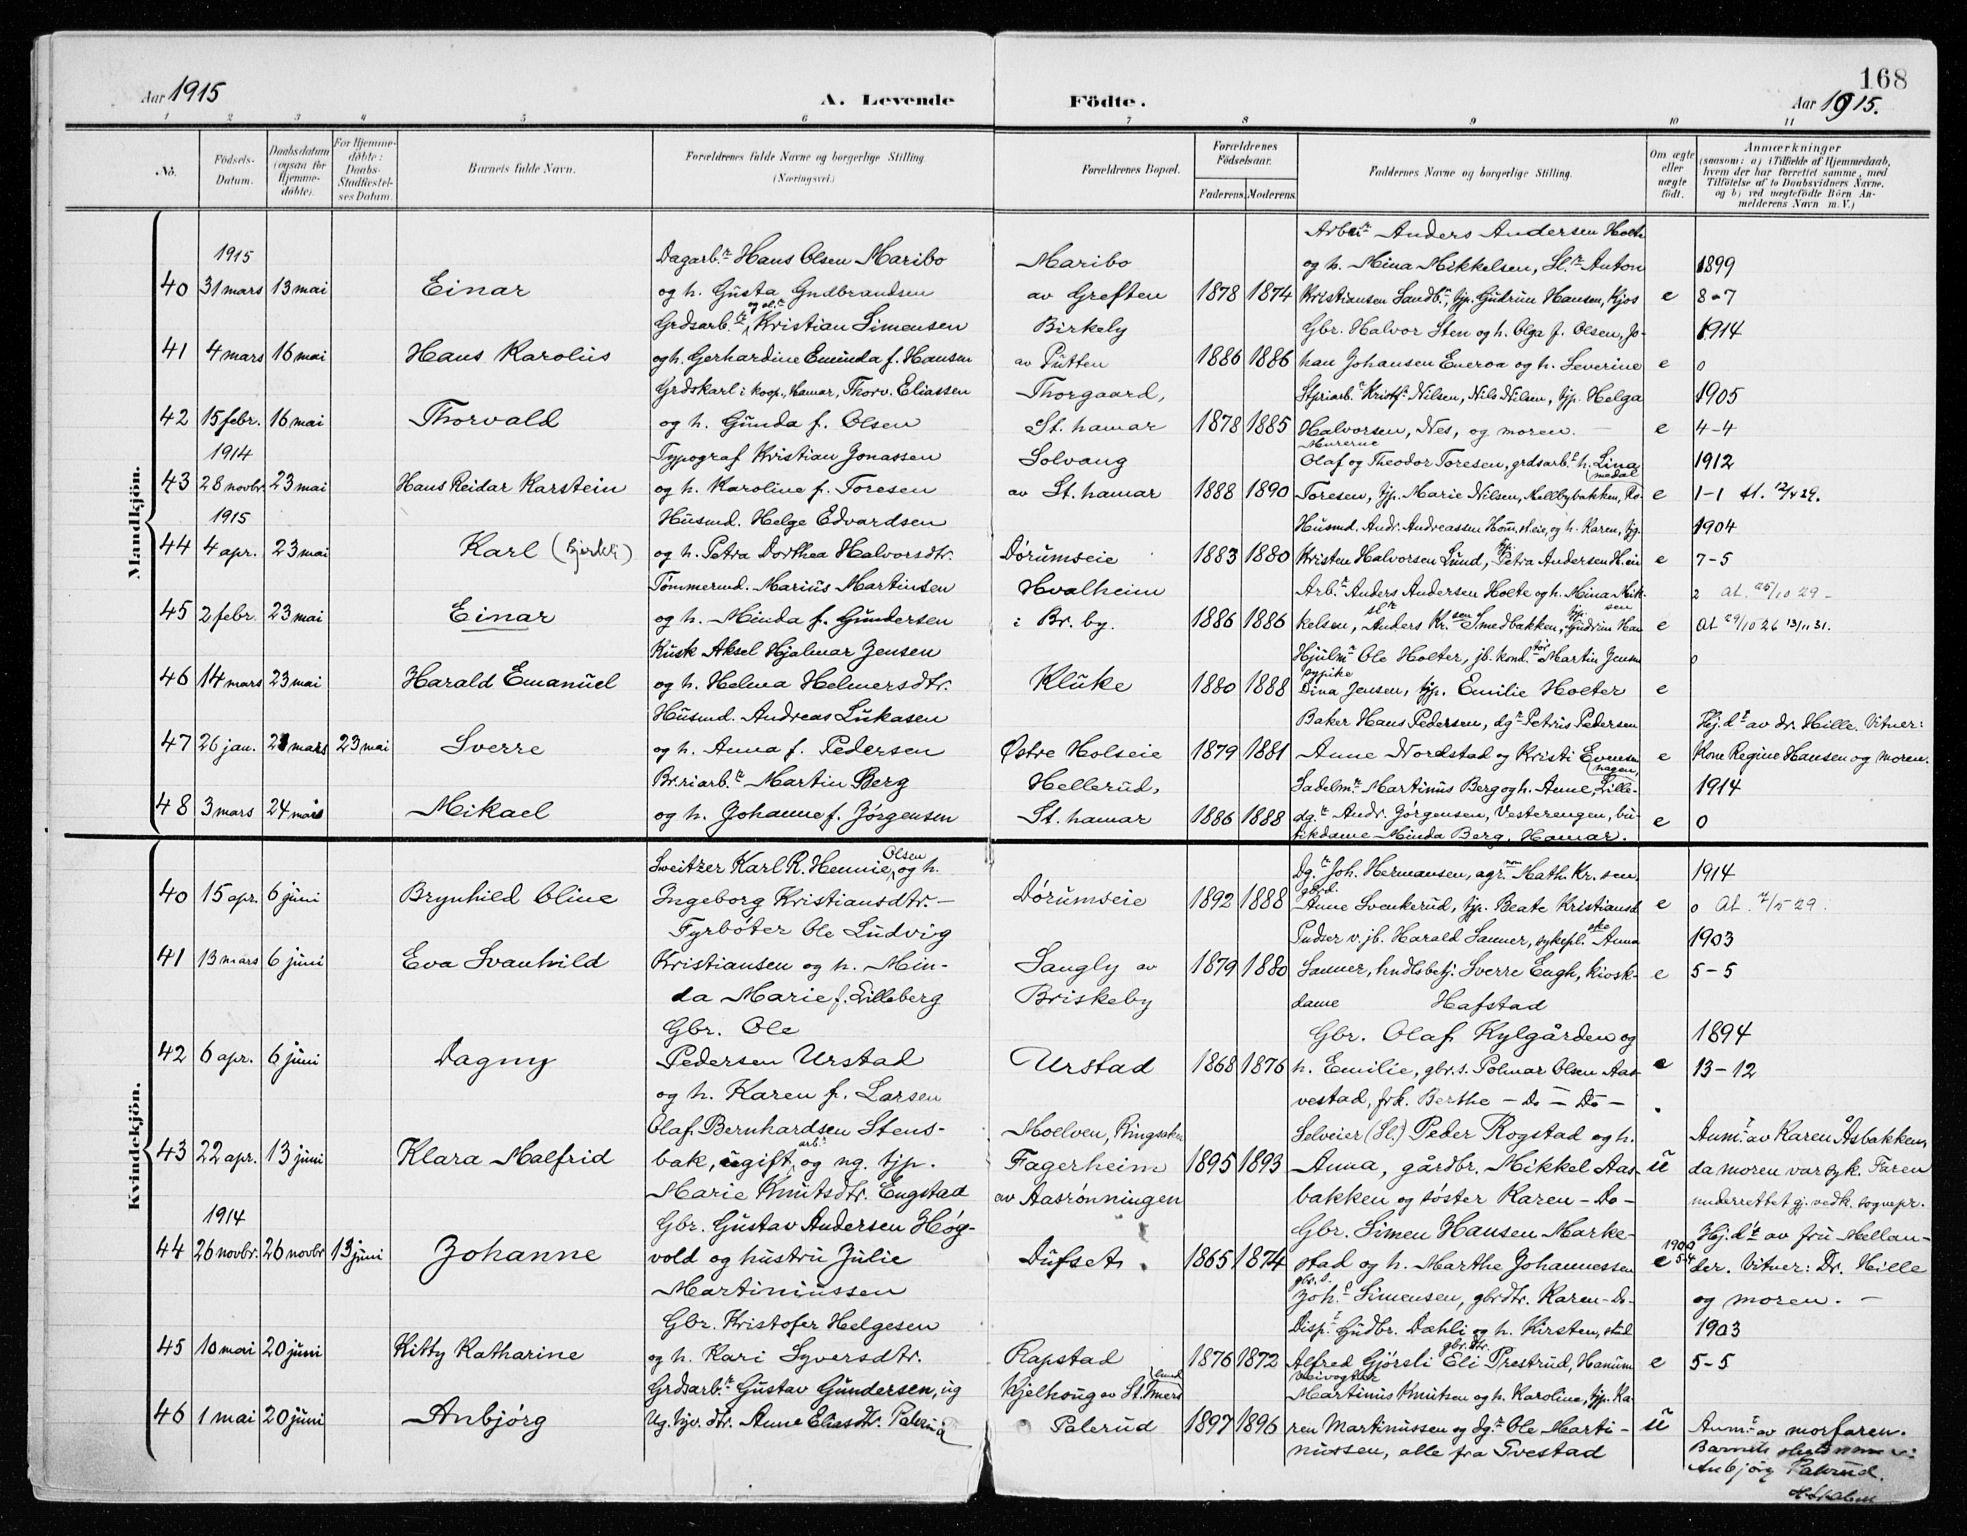 168
Aar 1915
A. Levende Födte.
Aar 1915.
1 2 3 4 5 6 7 8 9 10 11
No.
Födsels-Datum.
Daabsdatum (ogsaa for Hjemmedöbte).
For Hjemmedöbte: Daabs-Stadfæstelses Datum.
Barnets fulde Navn.
Forældrenes fulde Navne og borgerlige Stilling (Næringsvei.)
Forældrenes Bopæl.
Forældrenes Födselsaar.
Faderens. Moderens.
Faddernes Navne og borgerlige Stilling.
Om ægte eller uægte födt.
Anmærkninger
(saasom: a) i Tilfælde af Hjemmedaab,
hvem der har forrettet samme, med
Tilföielse af to Daabsvidners Navne.
og b) ved uægtefödte Börn Anmelderens Navn m. V.)
Mandkjön.
1915
Dagarb.r Hans Olsen Maribo
Maribo
Arb.r Anders Andersen Holte
og h. Mina Mikkelsen, Sl.r Anton
1899
40 31 mars 13 mai Einar og h. Gusta Gudbrandsen av Greften 1878 1874 Kristiansen Sandb., tjp. Gudrun Hansen, Kjos e 8-7
og sl.r
Grdsarb.r, Kristian Simensen Birkely Gbr. Halvor Sten og h. Olga f. Olsen, Jo- 1914
41 4 mars 16 mai Hans Karolius og h. Gerhardine Eminda f. Hansen av Pütten 1886 1886 han Johansen Eneroa og h. Severine e 0
Grdskarl i koop., Hamar, Thorv. Eliassen Thorgaard, Spriarb.r Kristf. Nilsen, Nils Nilsen, tjp. Helga 1905
42 15 febr. 16 mai Thorvald og h. Gunda f. Olsen St. hamar 1878 1885 Halvorsen, Nes, og moren. — e 4-4
1914 Typograf Kristian Jonassen Solvang
Murerne
Olaf og Theodor Toresen, grdsarb.r h. Lina 1912
43 28 novbr. 23 mai Hans Reidar Karstein og h. Karoline f. Toresen av St. hamar 1888 1890 Toresen, tjp. Marie Nilsen, Mellbybakken, Ro- e 1-1 At. 12/4 29.
medal
1915 Husmd. Helge Edvardsen Husmd. Andr. Andreassen Hom, st.eie, og h. Karen, tjg. 1904
44 4 apr. 23 mai Karl og h. Petra Dorthea Halvorsdtr. Dørumseie 1883 1880 Kristen Halvorsen Lund, tjp. Petra Andersen H.ei e 7-5
Tømmermd. Marius Martinsen Hvalheim Arb.r Anders Andersen Holte og h. Mina Mik- 2 At. 25/10 29 -
45 2 febr. 23 mai Einar og h. Minda f. Gundersen i Br. by. 1886 1886 kelsen, sl.r Anders Kr.sen Smedbakken, tjp. Gudrun Hansen e At 29/10 26 13/11 31.
Kusk Aksel Hjalmar Jensen Hjulm.r Ole Holter, jb. kond.tør Martin Jensen 0
46 14 mars 23 mai Harald Emanuel og h. Helma Helmersdtr. Kluke 1880 1888 sypike Dina Jensen, tjp. Emilie Holter e
Husmd. Andreas Lukasen Baker Hans Pedersen, dg.r Petrus Pedersen Hj.d.t av dr. Hille. Vitner:
47 26 jan. 2 mars 23 mai Sverre og h. Anna f. Pedersen Østre Holseie 1879 1881 Anne Nordstad og Kristi Evensen e Kone Regine Hansen og moren.
Br.riarb.r Martin Berg Hellerud, Sadelm.r Martinus Berg og h. Anne, Lille- 1914
hagen,
48 3 mars 24 mars Mikael og h. Johanne f. Jørgensen St. hamar 1886 1888 dg.r Andr. Jørgensen, Vesterengen, bu- e 0
tikdame Minda Berg, Hamar.
Kvindekjön.
Sveitzer Karl R. Hennie, Olsen og h. Dg.r Joh. Hermansen, agr.nom Math. Kr.sen, 1914
40 15 apr. 6 juni Brynhild Oline Ingeborg Kristiansdtr. — Dørumseie 1892 1888 gbrd. Anne Svenkerud, tjp. Beate Kristiansd e 0 At. 7/5 29.
Fyrbøter Ole Ludvig Pudser v. jb. Harald Sanner, sykepl.ske Anna 1903
41 13 mars 6 juni Eva Svanhild Kristiansen og h. Min- Sangly av 1879 1880 Sanner, hndlsbetj. Sverre Engh, kiosk- e 5-5
da Marie f. Lilleberg Briskeby dame Hafstad
Gbr. Ole Gbr. Olaf Kylgården og 1894
42 6 apr. 6 juni Dagny Pedersen Urstad Urstad 1868 1876 h. Emilie, gbr.s. Polmar Olsen Aas- e 13-12
og h. Karen f. Larsen vestad, frk. Berthe — Do — Do —
Olaf Bernhardsen Stens- Moelven, Ringsaker Selveier (Sl.) Peder Rogstad og h. Anm.t av Karen Åsbakken,
43 22 apr. 13 juni Klara Malfrid bak, ugift, arb.r og ug. tjp. Fagerheim 1895 1893 Anna, gårdbr. Mikkel Aas- ü da moren var syk. Faren
Marie Knutsdtr. Engstad av Aasrønningen bakken og søster Karen — Do — underrettet gj. vedk. sognepr.
1914 Gbr. Gustav Andersen Høg- Gbr. Simen Hansen Marke- Hj.d.t av fru Mellan-
44 26 novbr. 26 novbr 13 juni Johanne vold og hustru Julie Dufset 1865 1874 stad og h. Marthe Johannessen e 1900 5-4 der. Vitner: Dr. Hille
Martiniussen gbr.s. Joh. Simensen, gbrdtr. Karen — Do — og moren. —
Gbr. Kristofer Helgesen Disp. Gudbr. Dæhli og h. Kirsten, stud 1903
45 10 mai 20 juni Kitty Katharine og h. Kari Syversdtr. Rapstad 1876 1872 Alfred Gjørsli gbr.dtr. Eli Prestrud, Hanum e 5-5
Grdsarb.r Gustav Gundersen, ug Kjelhoug av St. Imerslund veivogter Martinus Knutsen og h. Karoline, tjp. Ka-
46 1 mai 20 juni Anbjørg Ug. tjv. dtr. Anne Eliasdtr. Palerud Palerud 1897 1896 ren Martinussen og dg.r Ole Marti- ü Anm.t av morfaren.
nussen, alle fra Tvestad
Anbjørg Palerud.